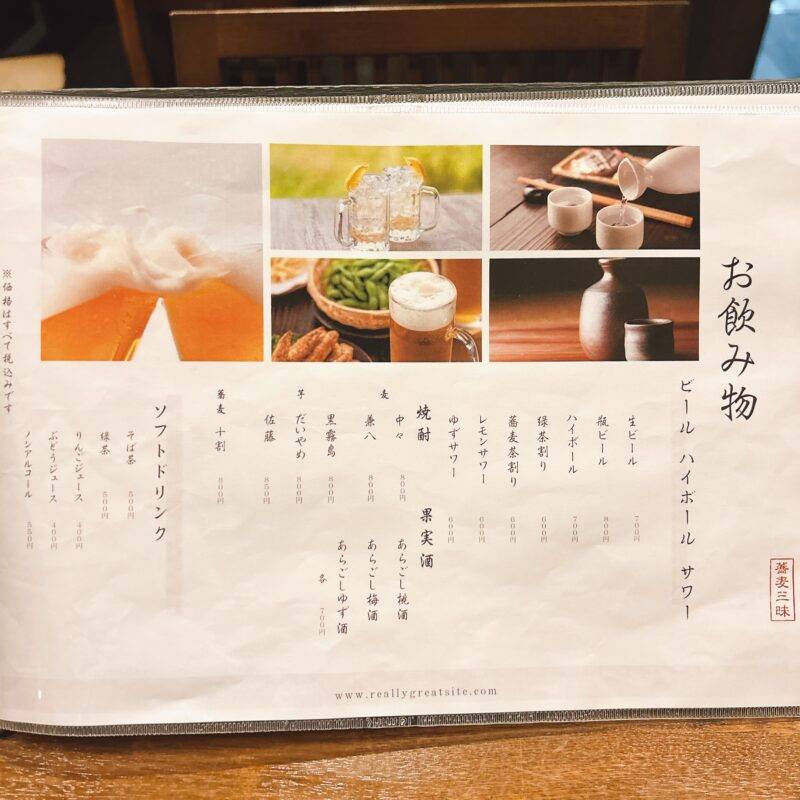 お飲み物
蕎麦三昧
ビール ハイボール サワー
生ビール 700円
瓶ビール 800円
ハイボール 700円
緑茶割り 600円
蕎麦茶割り 600円
レモンサワー 600円
ゆずサワー 600円
焼酎
麦
中々 800円
兼八 800円
芋
黒霧島 800円
だいやめ 800円
佐藤 850円
蕎麦 十割 800円
果実酒
あらごし桃酒
あらごし梅酒
あらごしゆず酒
各 700円
ソフトドリンク
そば茶 500円
緑茶 500円
りんごジュース 400円
ぶどうジュース 400円
ノンアルコール 550円
※価格はすべて税込みです
www.reallygreatsite.com